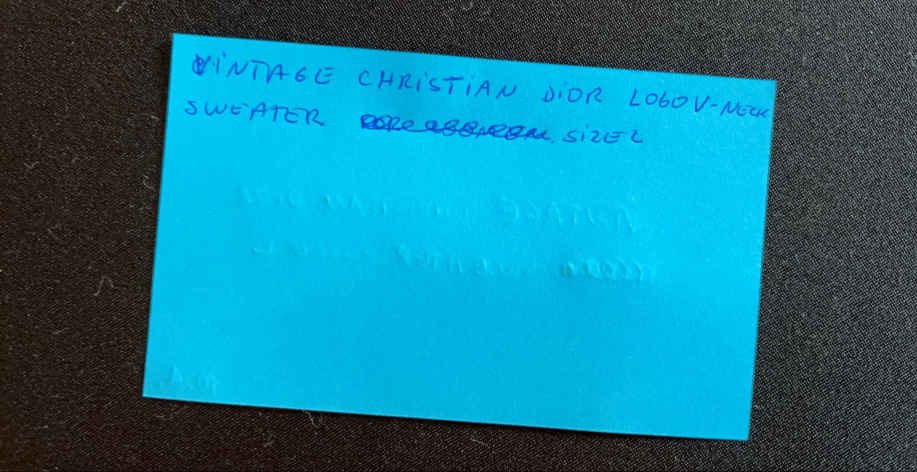 VINTAGE CHRISTIAN DIOR LOGO V-NECK
SWEATER SIZE L